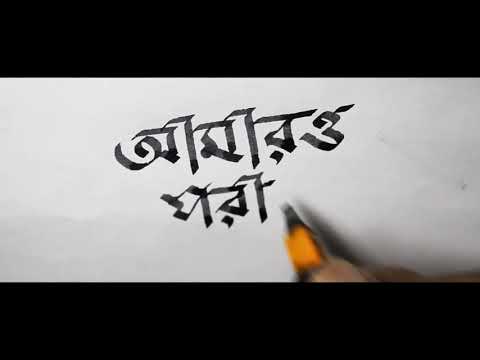 আমারও
পরা